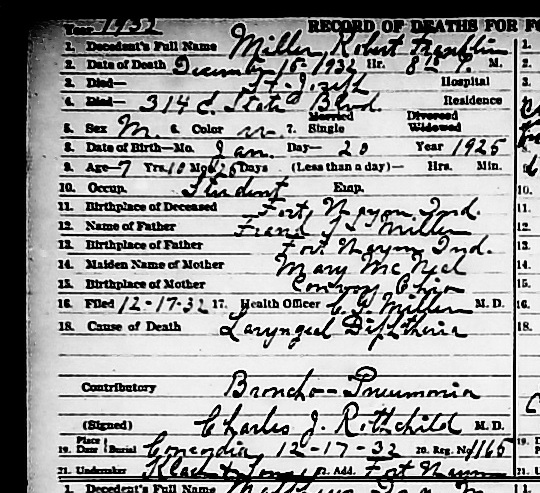 Year 1932 RECORD OF DEATHS FOR
1. Decedent's Full Name Miller, Robert Franklin
2. Date of Death December 15-1932 Hr. 8 P. M.
3. Died— St. Joseph Hospital
4. Died— 314 E. State Blvd. Residence
Married Divorced
5. Sex M. 6. Color w. 7. Single Widowed
8. Date of Birth—Mo. Jan. Day— 20 Year 1925
9. Age— 7 Yrs. 10 Mo. 25 Days (Less than a day)— Hrs. Min.
10. Occup. Student Emp.
11. Birthplace of Deceased Fort Wayne Ind.
12. Name of Father Frank Miller
13. Birthplace of Father Fort Wayne Ind.
14. Maiden Name of Mother Mary McNeal
15. Birthplace of Mother Convoy Ohio
16. Filed 12-17-32 17. Health Officer Miller M. D.
18. Cause of Death Laryngeal Diphtheria
Contributory Broncho-Pneumonia
(Signed) Charles J. Rothchild M. D.
Place
19. Date Burial Concordia 12-17-32 20. Reg. No. 1165
21. Undertaker Klaehn 22. Add. Fort Wayne
1. Decedent's Full Name